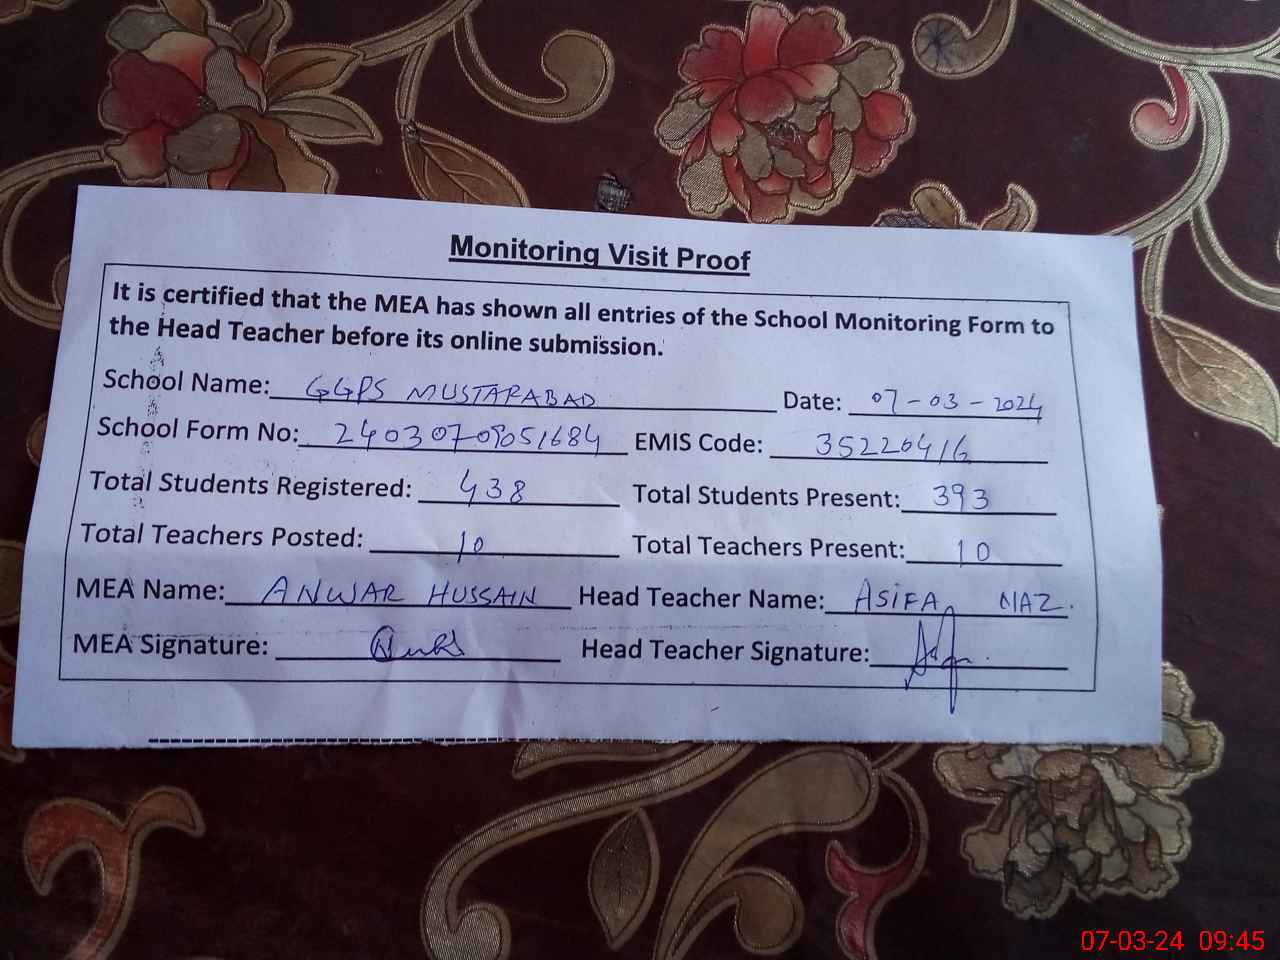 Monitoring Visit Proof
It is certified that the MEA has shown all entries of the School Monitoring Form to
the Head Teacher before its online submission.
School Name: GGPS MUSTARABAD Date: 07-03-2024
School Form No: 24030709051684 EMIS Code: 35220416
Total Students Registered: 438 Total Students Present: 393
Total Teachers Posted: 10 Total Teachers Present: 10
MEA Name: ANWAR HUSSAIN Head Teacher Name: ASIFA NAZ.
MEA Signature: Head Teacher Signature:
07-03-24 09:45